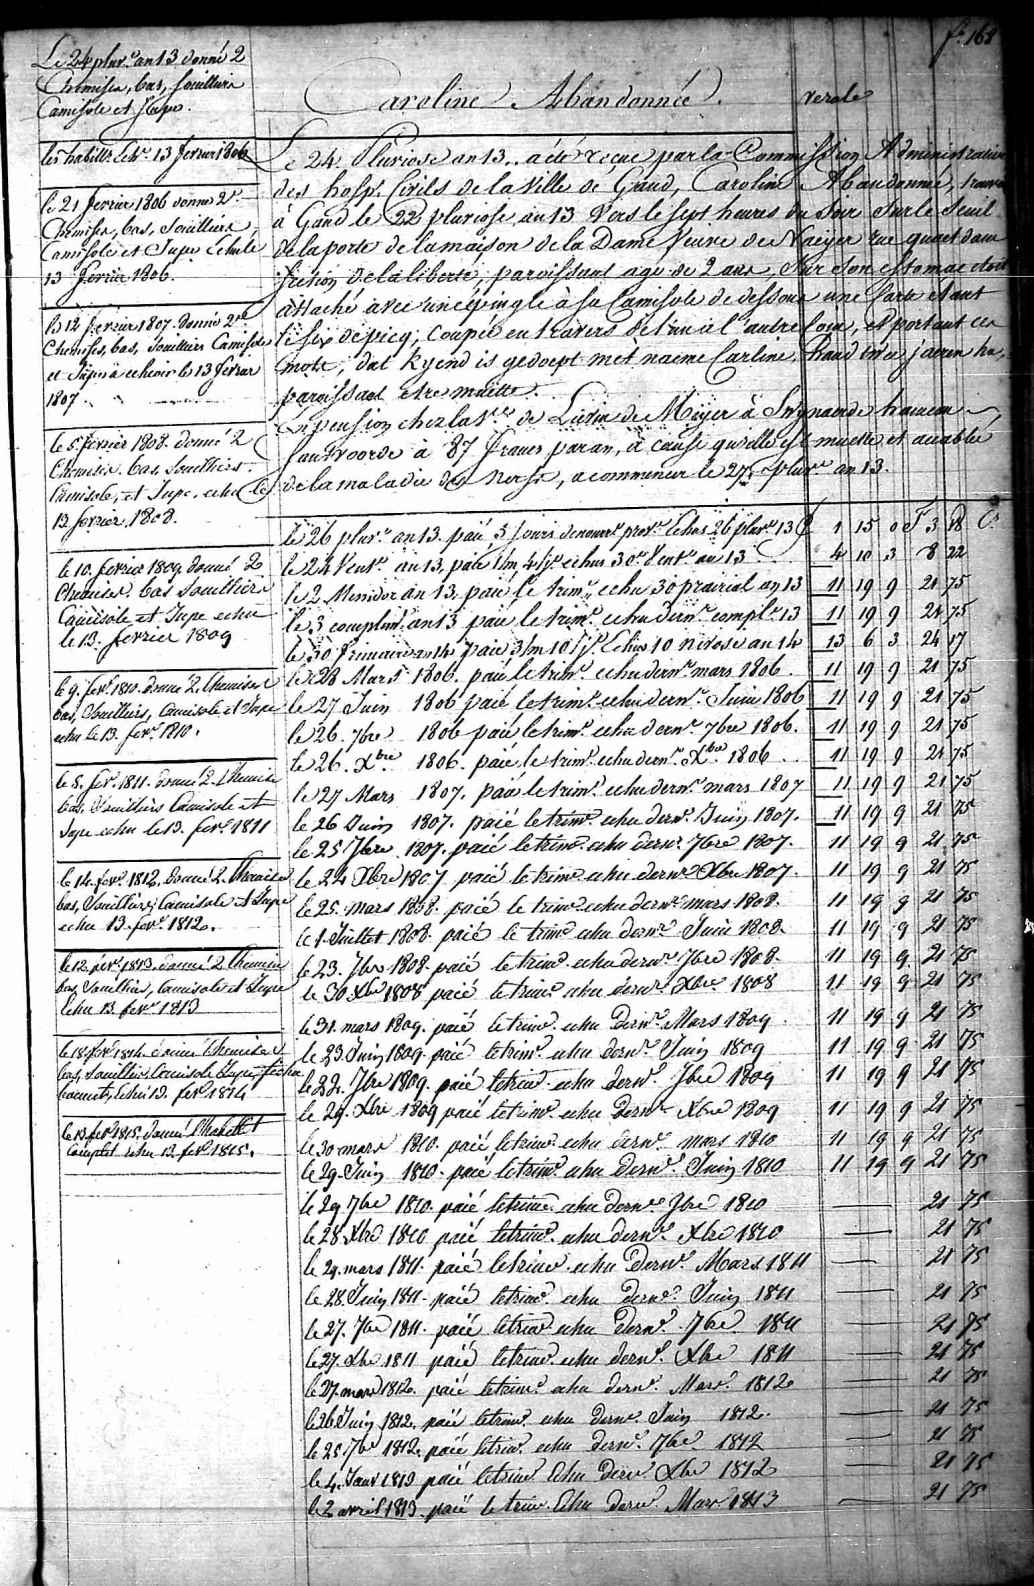 f.° 168
Le 24 pluv.e an 13 donné 2
Chemises, bas, souilliers
Camisole et Jupe.
les habillé echu. 13 fevrier 1806
le 21 fevrier 1806 donné 2
Chemises, bas, Souilliers
Camisole et Jupe echu le
13 fevrier 1806.
le 12 fevrier 1807. donné 2
Chemises, bas, souilliers Camisole
et Jupe à echeoir le 13 fevrier
1807.
le 5 fevrier 1808. donné 2
Chemises. bas, Souilliers
Camisole, et Jupe, echu le
13 fevrier 1808.
le 10. fevrier 1809 donné 2
Chemises. bas Souilliers
Camisole et Jupe echu
le 13. fevrier 1809
le 9. fev.r 1810. donné 2. Chemises
bas, Souilliers, Camisole et Jupe
echu le 13. fev.r 1810.
le 5. fev.r 1811. donné 2. Chemises
bas, Souilliers Camisole et
Jupe echu le 13. fev.r 1811
le 14. fev.r 1812, donné 2. Chemises
bas, Souilliers, Camisole et Jupe
echu 13. fev.r 1812.
le 12. fev.r 1813. donné 2 Chemises
bas, Souilliers, Camisole et Jupe
Echu 13. fev.r 1813
le 18. fev.r 1814. donné Chemises
bas, Souilliers Camisole Jupe
echu 13. fev.r 1814
le 13. fev.r 1815. donné l'habillet
Complet echu 13. fev.r 1815.
Caroline Abandonnée. verole
Le 24 Pluviose an 13. a été reçue par la Commission Administrative
des hosp.s Civils de la Ville de Gand, Caroline Abandonnée, trouvée
à Gand le 22 pluviose an 13 Vers le sept heures du Soir sur le Seuil
de la porte de la maison de la Dame Veuve de Naeyer rue quaet dam
section de la liberté, paroissant agé de 2 ans. Sur son estomac etoit
attaché avec une epingle à sa Camisole de dessous une Carte etant
le six de picq, coupée en travers de l'un à l'autre coin, et portant ces
mots, dat kyend is gedoept met naeme Carline,
paroissant etre muette.
en pension chez la V.ve de Lieven de Meijer à Swynaerde hameau
Santvoorde à 87 francs par an, à cause qu'elle est muette et accablée
de la maladie des Nerfs, a commencer le 27. pluv.e an 13.
le 26 pluv.e an 13. paié 3 jours de nourr.e prov.e Echus 26 pluv.e 13 1 15 0 3 18
le 24 Vent.e an 13. paié 1/m 4/j.s echus 30.e Vent.e an 13 4 10 3 8 22
le 2 Messidor an 13, paié le trim.e echu 30 prairial an 13 11 19 9 21 75
le 3 complim.e an 13 paié le trim.e echu dern.r compl.e 13 11 19 9 21 75
le 30 frimaire an 14 paié 3/m 10/j.s Echus 10 nivose an 14 13 6 3 24 17
le 28 Mars 1806. paié le trim.e echu dern.r mars 1806 11 19 9 21 75
le 27 Juin 1806 paié le trim.e echu dern.r Juin 1806 11 19 9 21 75
le 26. 7bre 1806 paié le trim.e echu dern.r 7bre 1806. 11 19 9 21 75
le 26. Xbre 1806. paié le trim.e echu dern.r Xbre 1806 11 19 9 21 75
le 27 Mars 1807. paié le trim.e echu dern.r mars 1807 11 19 9 21 75
le 26 Juin 1807. paié le trim.e echu dern.r Juin 1807. 11 19 9 21 75
le 25 7bre 1807. paié le trim.e echu dern.r 7bre 1807. 11 19 9 21 75
le 24 Xbre 1807 paié le trim.e echu dern.r Xbre 1807. 11 19 9 21 75
le 25. mars 1808. paié le trim.e echu dern.r mars 1808. 11 19 9 21 75
le 1. Juillet 1808. paié le trim.e echu dern.r Juin 1808. 11 19 9 21 75
le 23. 7bre 1808. paié le trim.e echu dern.r 7bre 1808. 11 19 9 21 75
le 30 Xbre 1808 paié le trim.e echu dern.r Xbre 1808 11 19 9 21 75
le 31. mars 1809. paié le trim.e echu dern.r Mars 1809 11 19 9 21 75
le 23 Juin 1809. paié le trim.e echu dern.r Juin 1809 11 19 9 21 75
le 22. 7bre 1809. paié le trim.e echu dern.r 7bre 1809 11 19 9 21 75
le 29. Xbre 1809 paié le trim.e echu dern.r Xbre 1809 11 19 9 21 75
le 30 mars 1810. paié le trim.e echu dern.r mars 1810 11 19 9 21 75
le 29. Juin 1810. paié le trim.e echu dern.r Juin 1810 11 19 9 21 75
le 29 7bre 1810. paié le trim.e echu dern.r 7bre 1810 21 75
le 28 Xbre 1810 paié le trim.e echu dern.r Xbre 1810 21 75
le 29. mars 1811. paié le trim.e echu Dern.r Mars 1811 21 75
le 28. Juin 1811. paié le trim.e echu dern.r Juin 1811 21 75
le 27. 7bre 1811. paié le trim.e echu Dern.r 7bre. 1811 21 75
le 27. Xbre 1811 paié le trim.e echu dern.r Xbre 1811 21 75
le 27. mars 1812. paié le trim.e echu dern.r Mars. 1812 21 75
le 26. Juin 1812. paié le trim.e echu dern.r Juin 1812. 21 75
le 25 7bre 1812. paié le trim.e echu dern.r 7bre 1812 21 75
le 4. Janv 1813 paié le trim.e Echu Dern.r Xbre 1812 21 75
le 2 avril 1813. paié le trim.e Echu dern.r Mars 1813 21 75